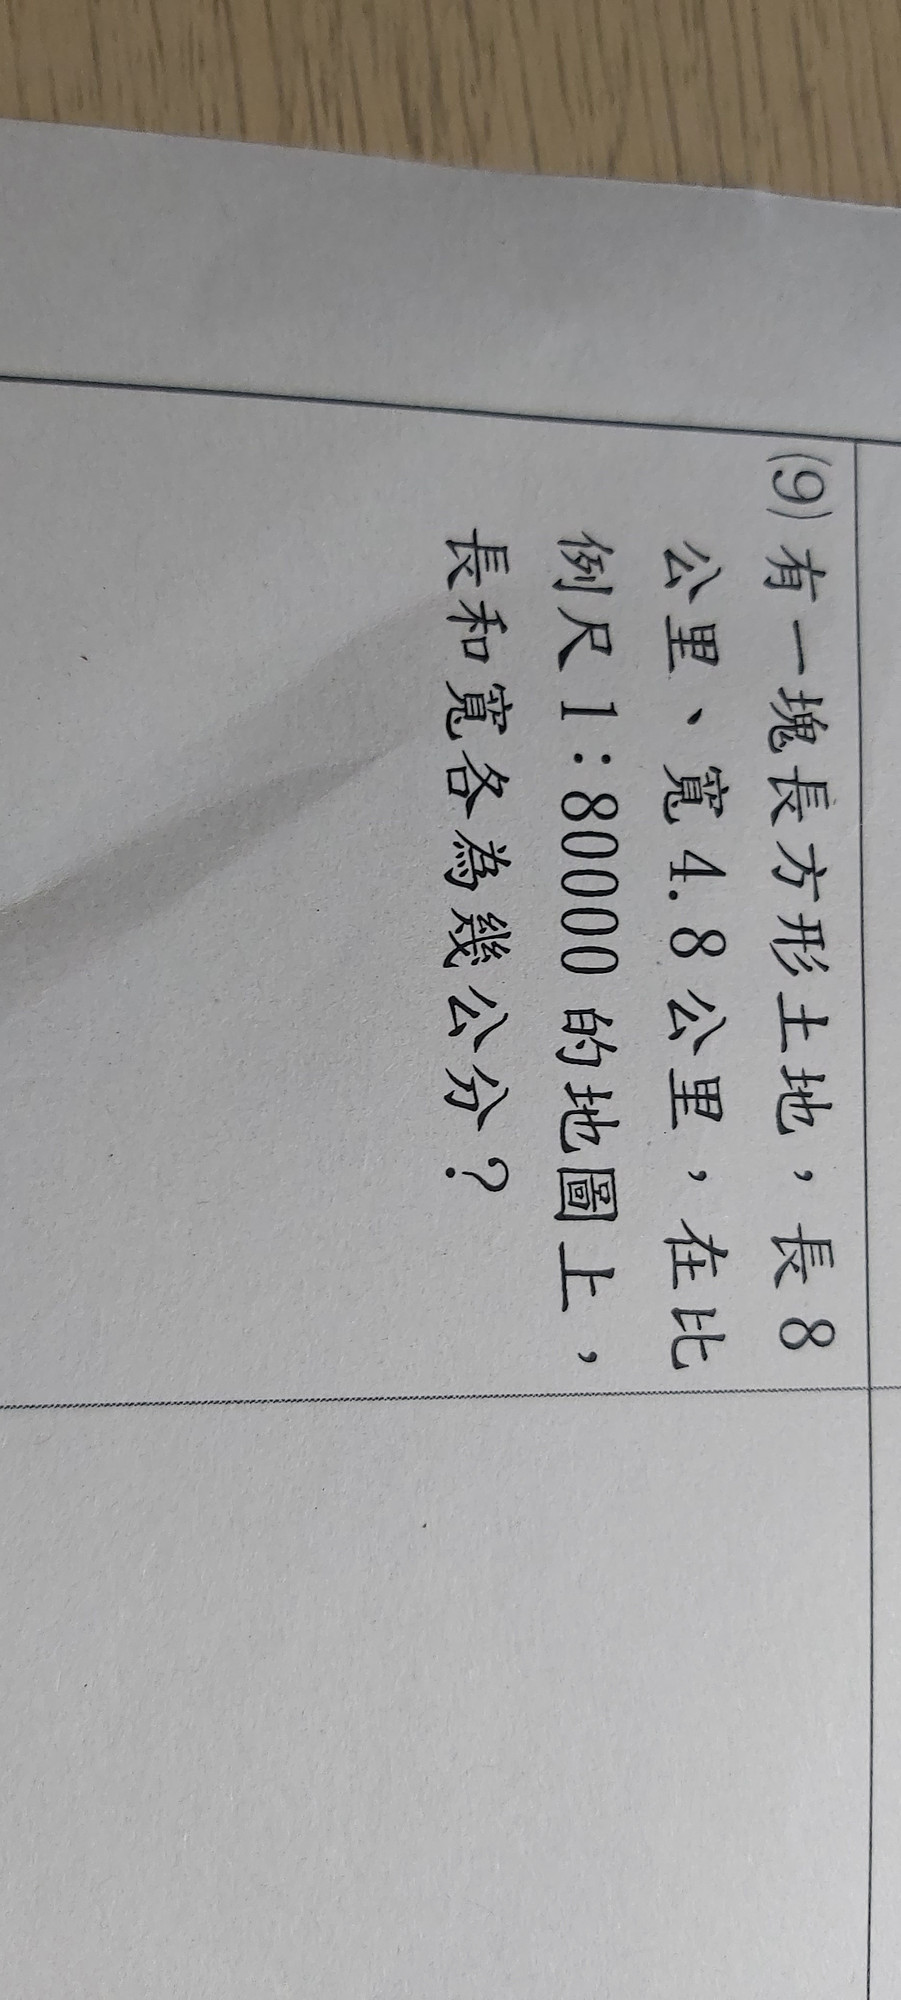 (9)有一塊長方形土地，長8
公里、寬4.8公里，在比
例尺1:80000的地圖上，
長和寬各為幾公分？